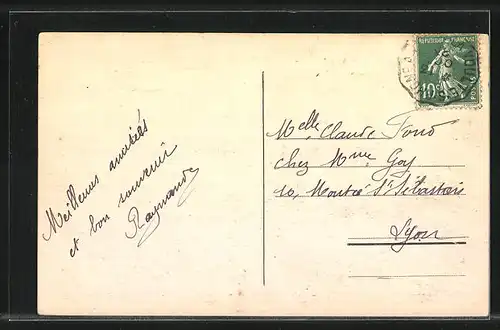 Meilleures amitiés
et bon souvenir
Raymonde
REPUBLIQUE FRANÇAISE
10c
POSTES
Melle Claude Fond
chez Mme Gay
10, Montée St Sébastien
Lyon